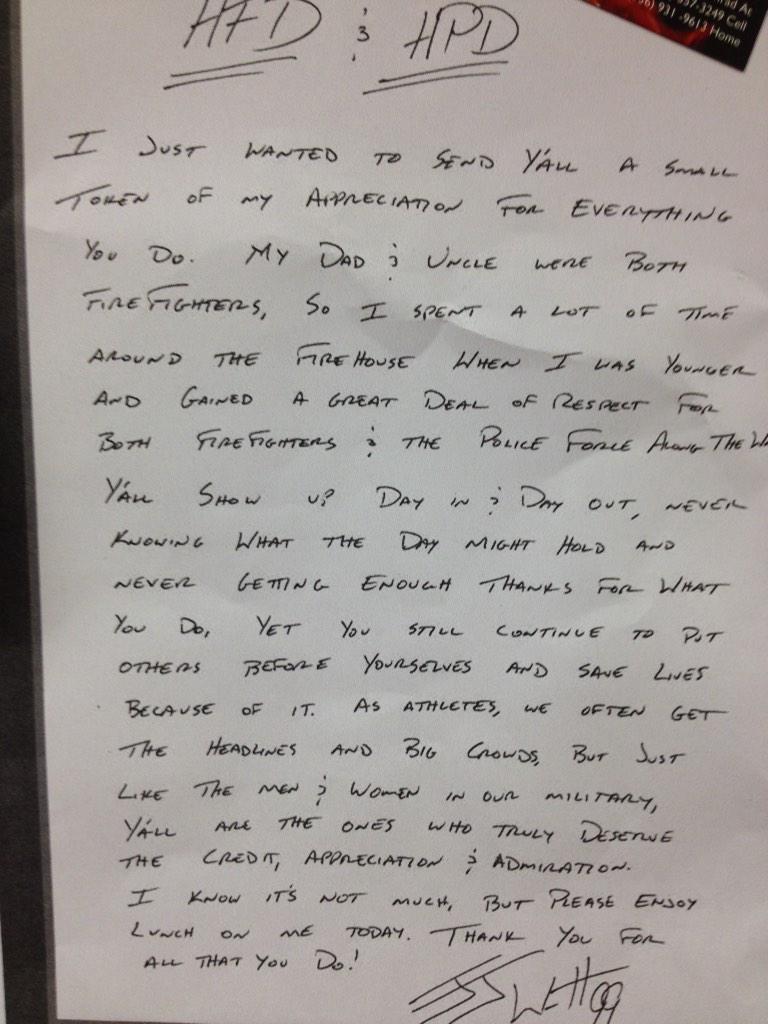 HFD & HPD
57-3249 Cell
931-9613 Home
I JUST WANTED TO SEND Y'ALL A SMALL
TOKEN OF MY APPRECIATION FOR EVERYTHING
YOU DO. MY DAD & UNCLE WERE BOTH
FIREFIGHTERS, SO I SPENT A LOT OF TIME
AROUND THE FIREHOUSE WHEN I WAS YOUNGER
AND GAINED A GREAT DEAL OF RESPECT FOR
BOTH FIREFIGHTERS & THE POLICE FORCE ALONG THE WA
Y'ALL SHOW UP DAY IN & DAY OUT, NEVER
KNOWING WHAT THE DAY MIGHT HOLD AND
NEVER GETTING ENOUGH THANKS FOR WHAT
YOU DO, YET YOU STILL CONTINUE TO PUT
OTHERS BEFORE YOURSELVES AND SAVE LIVES
BECAUSE OF IT. AS ATHLETES, WE OFTEN GET
THE HEADLINES AND BIG CROWDS, BUT JUST
LIKE THE MEN & WOMEN IN OUR MILITARY,
Y'ALL ARE THE ONES WHO TRULY DESERVE
THE CREDIT, APPRECIATION & ADMIRATION.
I KNOW IT'S NOT MUCH, BUT PLEASE ENJOY
LUNCH ON ME TODAY. THANK YOU FOR
ALL THAT YOU DO!
JJ Watt 99